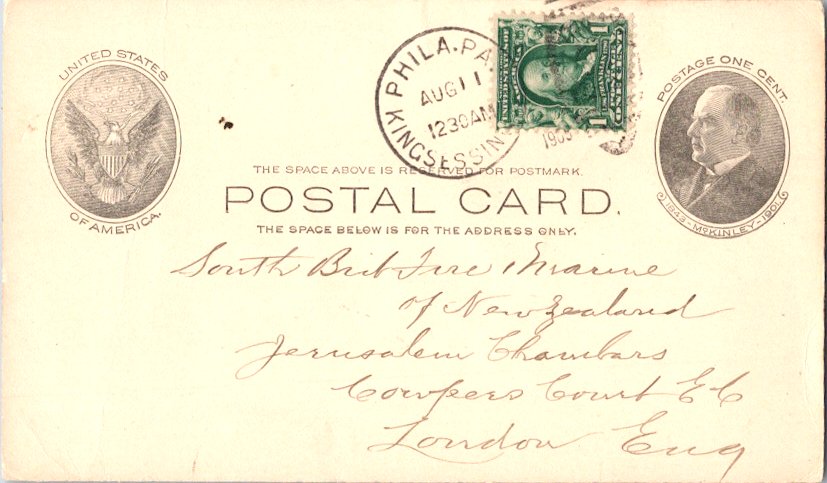 UNITED STATES
OF AMERICA.
PHILA. PA.
AUG 11
1230AM
KINGSESSING
1905
UNITED STATES OF AMERICA
1 ONE CENT 1
POSTAGE ONE CENT.
1843-McKINLEY-1901.
THE SPACE ABOVE IS RESERVED FOR POSTMARK.
POSTAL CARD.
THE SPACE BELOW IS FOR THE ADDRESS ONLY.
South Brit Fire & Marine
of New Zealand
Jerusalem Chambars
Cowpers Court E C
London Eng